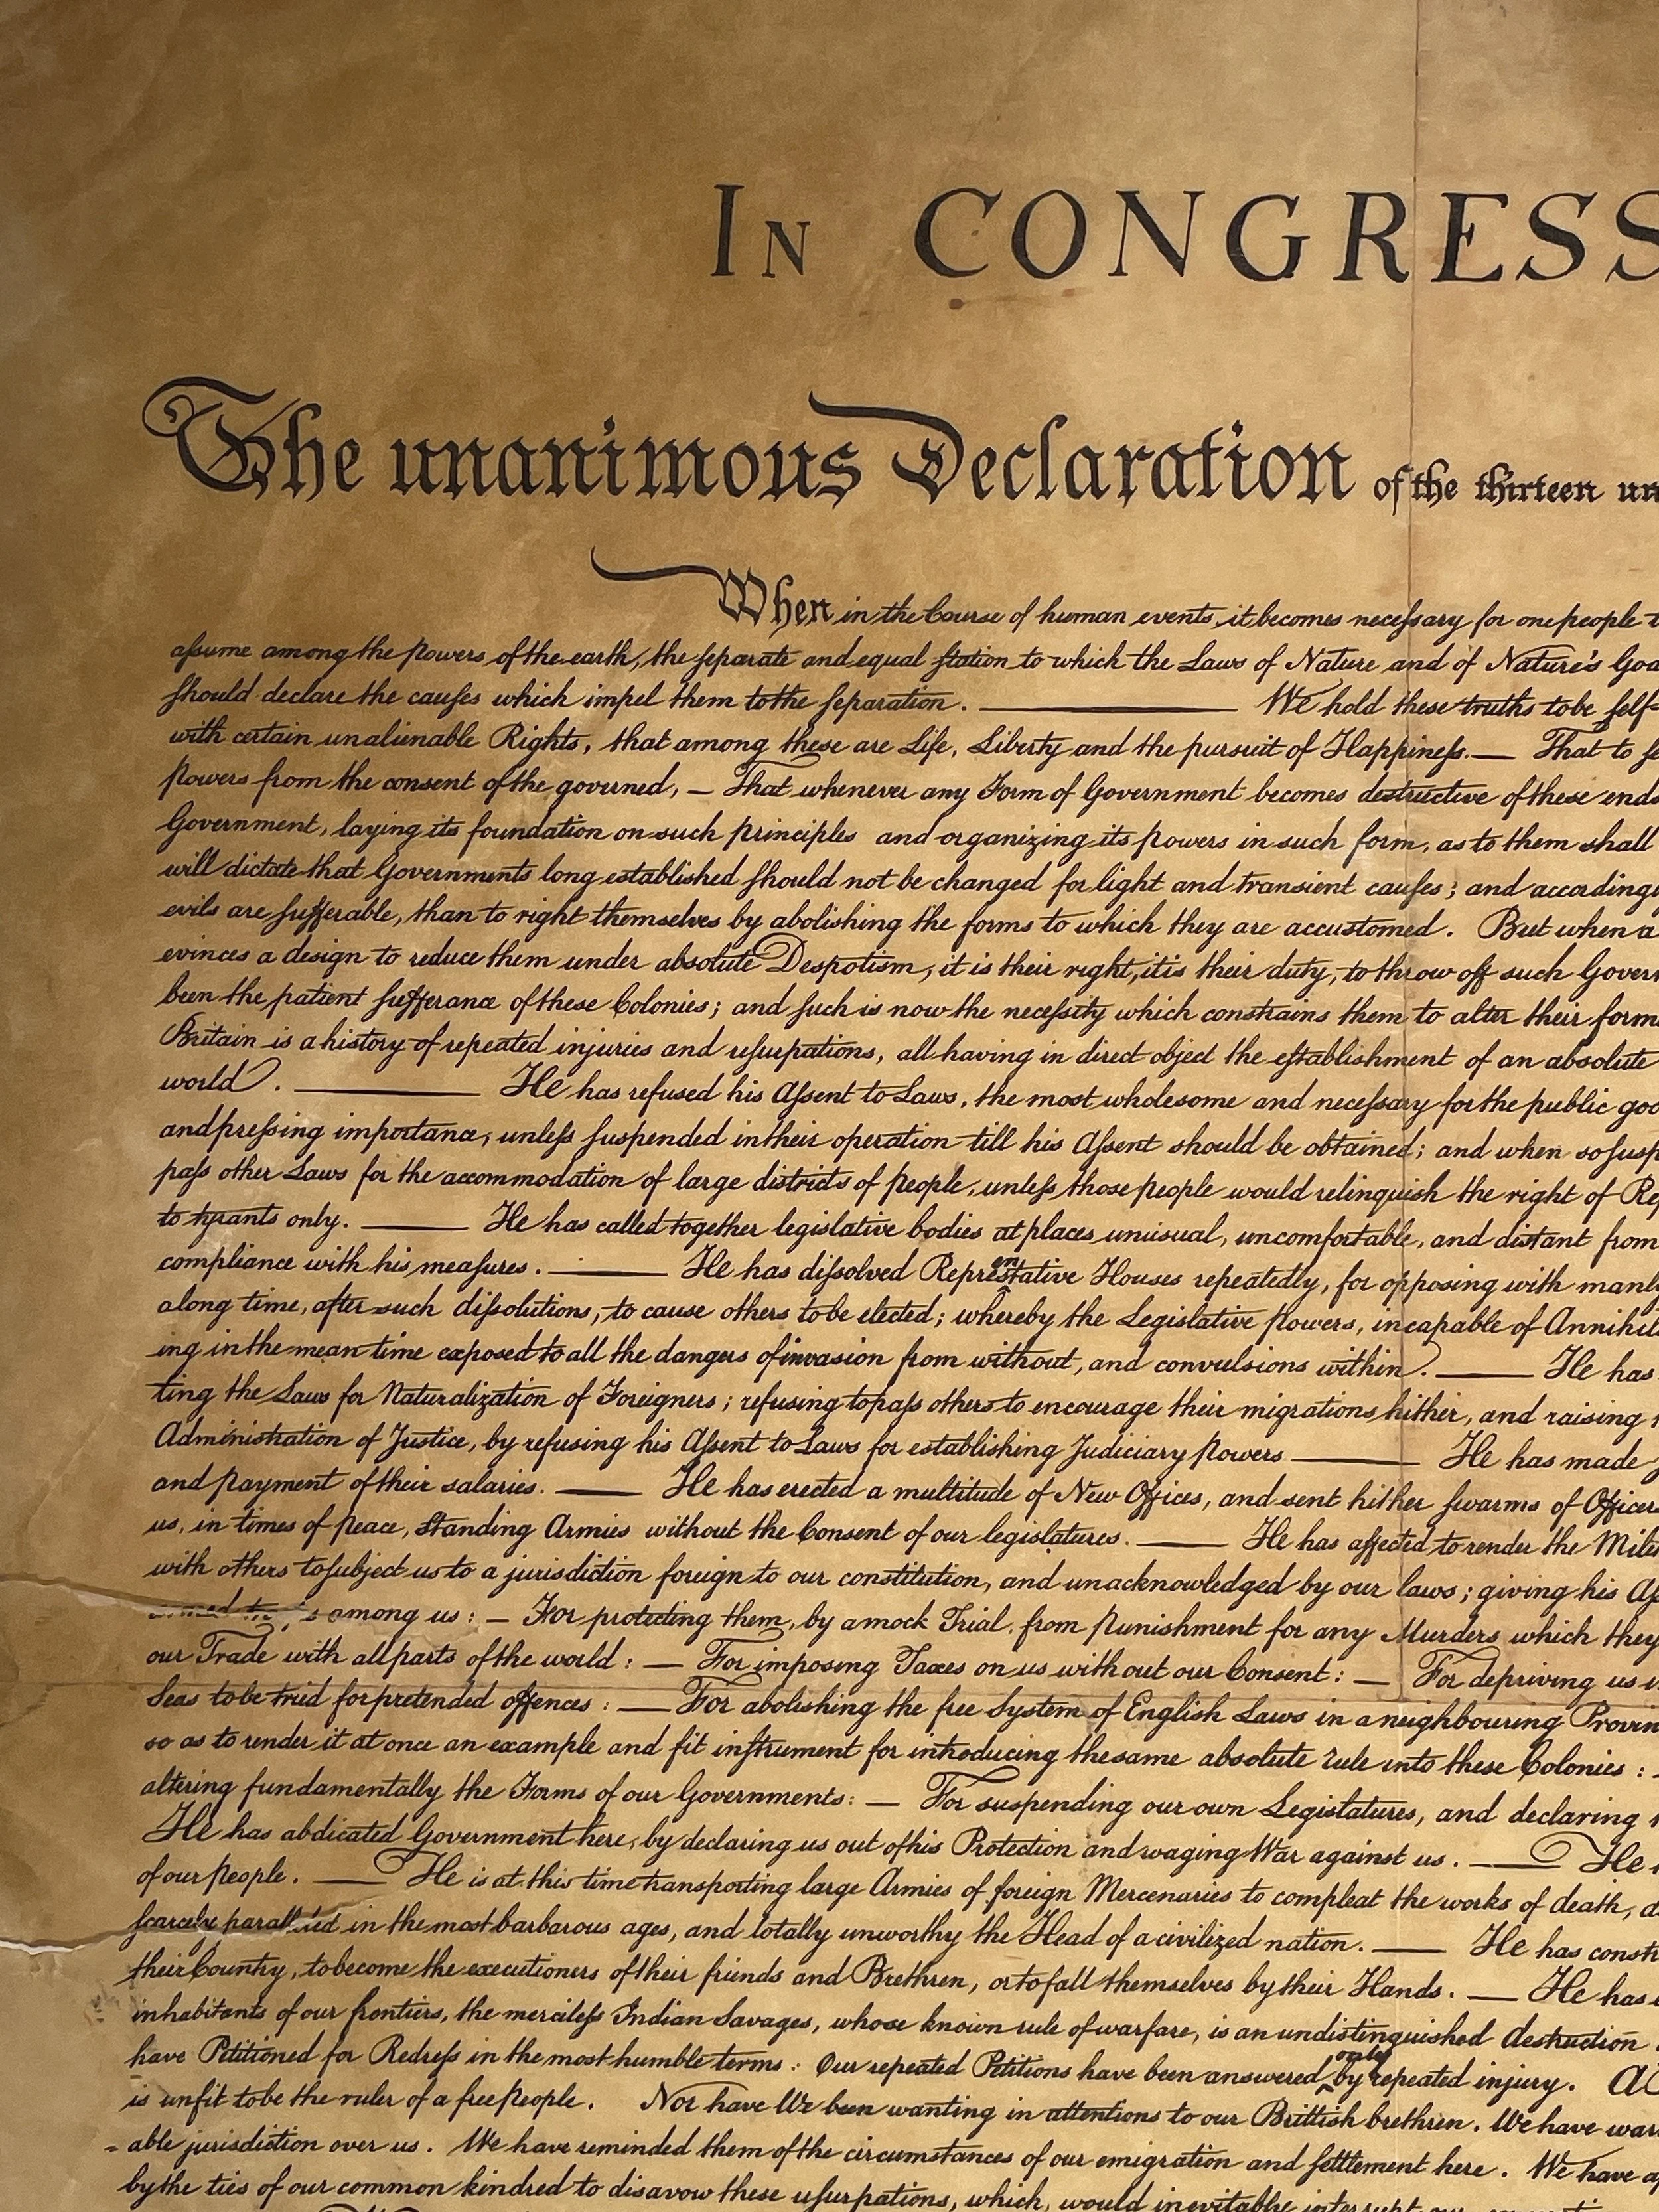 IN CONGRESS
The unanimous Declaration of the thirteen un
When in the Course of human events, it becomes necessary for one people t
assume among the powers of the earth, the separate and equal station to which the Laws of Nature and of Nature's God
should declare the causes which impel them to the separation. ——— We hold these truths to be self-
with certain unalienable Rights, that among these are Life, Liberty and the pursuit of Happiness.— That to se
powers from the consent of the governed, — That whenever any Form of Government becomes destructive of these ends
Government, laying its foundation on such principles and organizing its powers in such form, as to them shall
will dictate that Governments long established should not be changed for light and transient causes; and accordingl
evils are sufferable, than to right themselves by abolishing the forms to which they are accustomed. But when a
evinces a design to reduce them under absolute Despotism, it is their right, it is their duty, to throw off such Govern
been the patient sufferance of these Colonies; and such is now the necessity which constrains them to alter their form
Britain is a history of repeated injuries and usurpations, all having in direct object the establishment of an absolute
world. ——— He has refused his Assent to Laws, the most wholesome and necessary for the public goo
and pressing importance, unless suspended in their operation till his Assent should be obtained; and when so susp
pass other Laws for the accommodation of large districts of people, unless those people would relinquish the right of Rep
to tyrants only. ——— He has called together legislative bodies at places unusual, uncomfortable, and distant from
compliance with his measures. ——— He has dissolved Representative Houses repeatedly, for opposing with manly
a long time, after such dissolutions, to cause others to be elected; whereby the Legislative powers, incapable of Annihila
ing in the mean time exposed to all the dangers of invasion from without, and convulsions within. ——— He has
ting the Laws for Naturalization of Foreigners; refusing to pass others to encourage their migrations hither, and raising
Administration of Justice, by refusing his Assent to Laws for establishing Judiciary powers ——— He has made
and payment of their salaries. ——— He has erected a multitude of New Offices, and sent hither swarms of Officer
us, in times of peace, Standing Armies without the Consent of our legislatures. ——— He has affected to render the Mili
with others to subject us to a jurisdiction foreign to our constitution, and unacknowledged by our laws; giving his As
armed among us: — For protecting them, by a mock Trial, from punishment for any Murders which they
our Trade with all parts of the world: — For imposing Taxes on us without our Consent: — For depriving us i
Seas to be tried for pretended offences: — For abolishing the free System of English Laws in a neighbouring Provin
so as to render it at once an example and fit instrument for introducing the same absolute rule into these Colonies:
altering fundamentally the Forms of our Governments: — For suspending our own Legislatures, and declaring
He has abdicated Government here, by declaring us out of his Protection and waging War against us. ——— He
of our people. ——— He is at this time transporting large Armies of foreign Mercenaries to compleat the works of death, d
scarcely paralleled in the most barbarous ages, and totally unworthy the Head of a civilized nation. ——— He has constr
their Country, to become the executioners of their friends and Brethren, or to fall themselves by their Hands. — He has
inhabitants of our frontiers, the merciless Indian Savages, whose known rule of warfare, is an undistinguished destruction
have Petitioned for Redress in the most humble terms: Our repeated Petitions have been answered only by repeated injury. A
is unfit to be the ruler of a free people. Nor have We been wanting in attentions to our Brittish brethren. We have war
- able jurisdiction over us. We have reminded them of the circumstances of our emigration and settlement here. We have ap
by the ties of our common kindred to disavow these usurpations, which, would inevitably interrupt